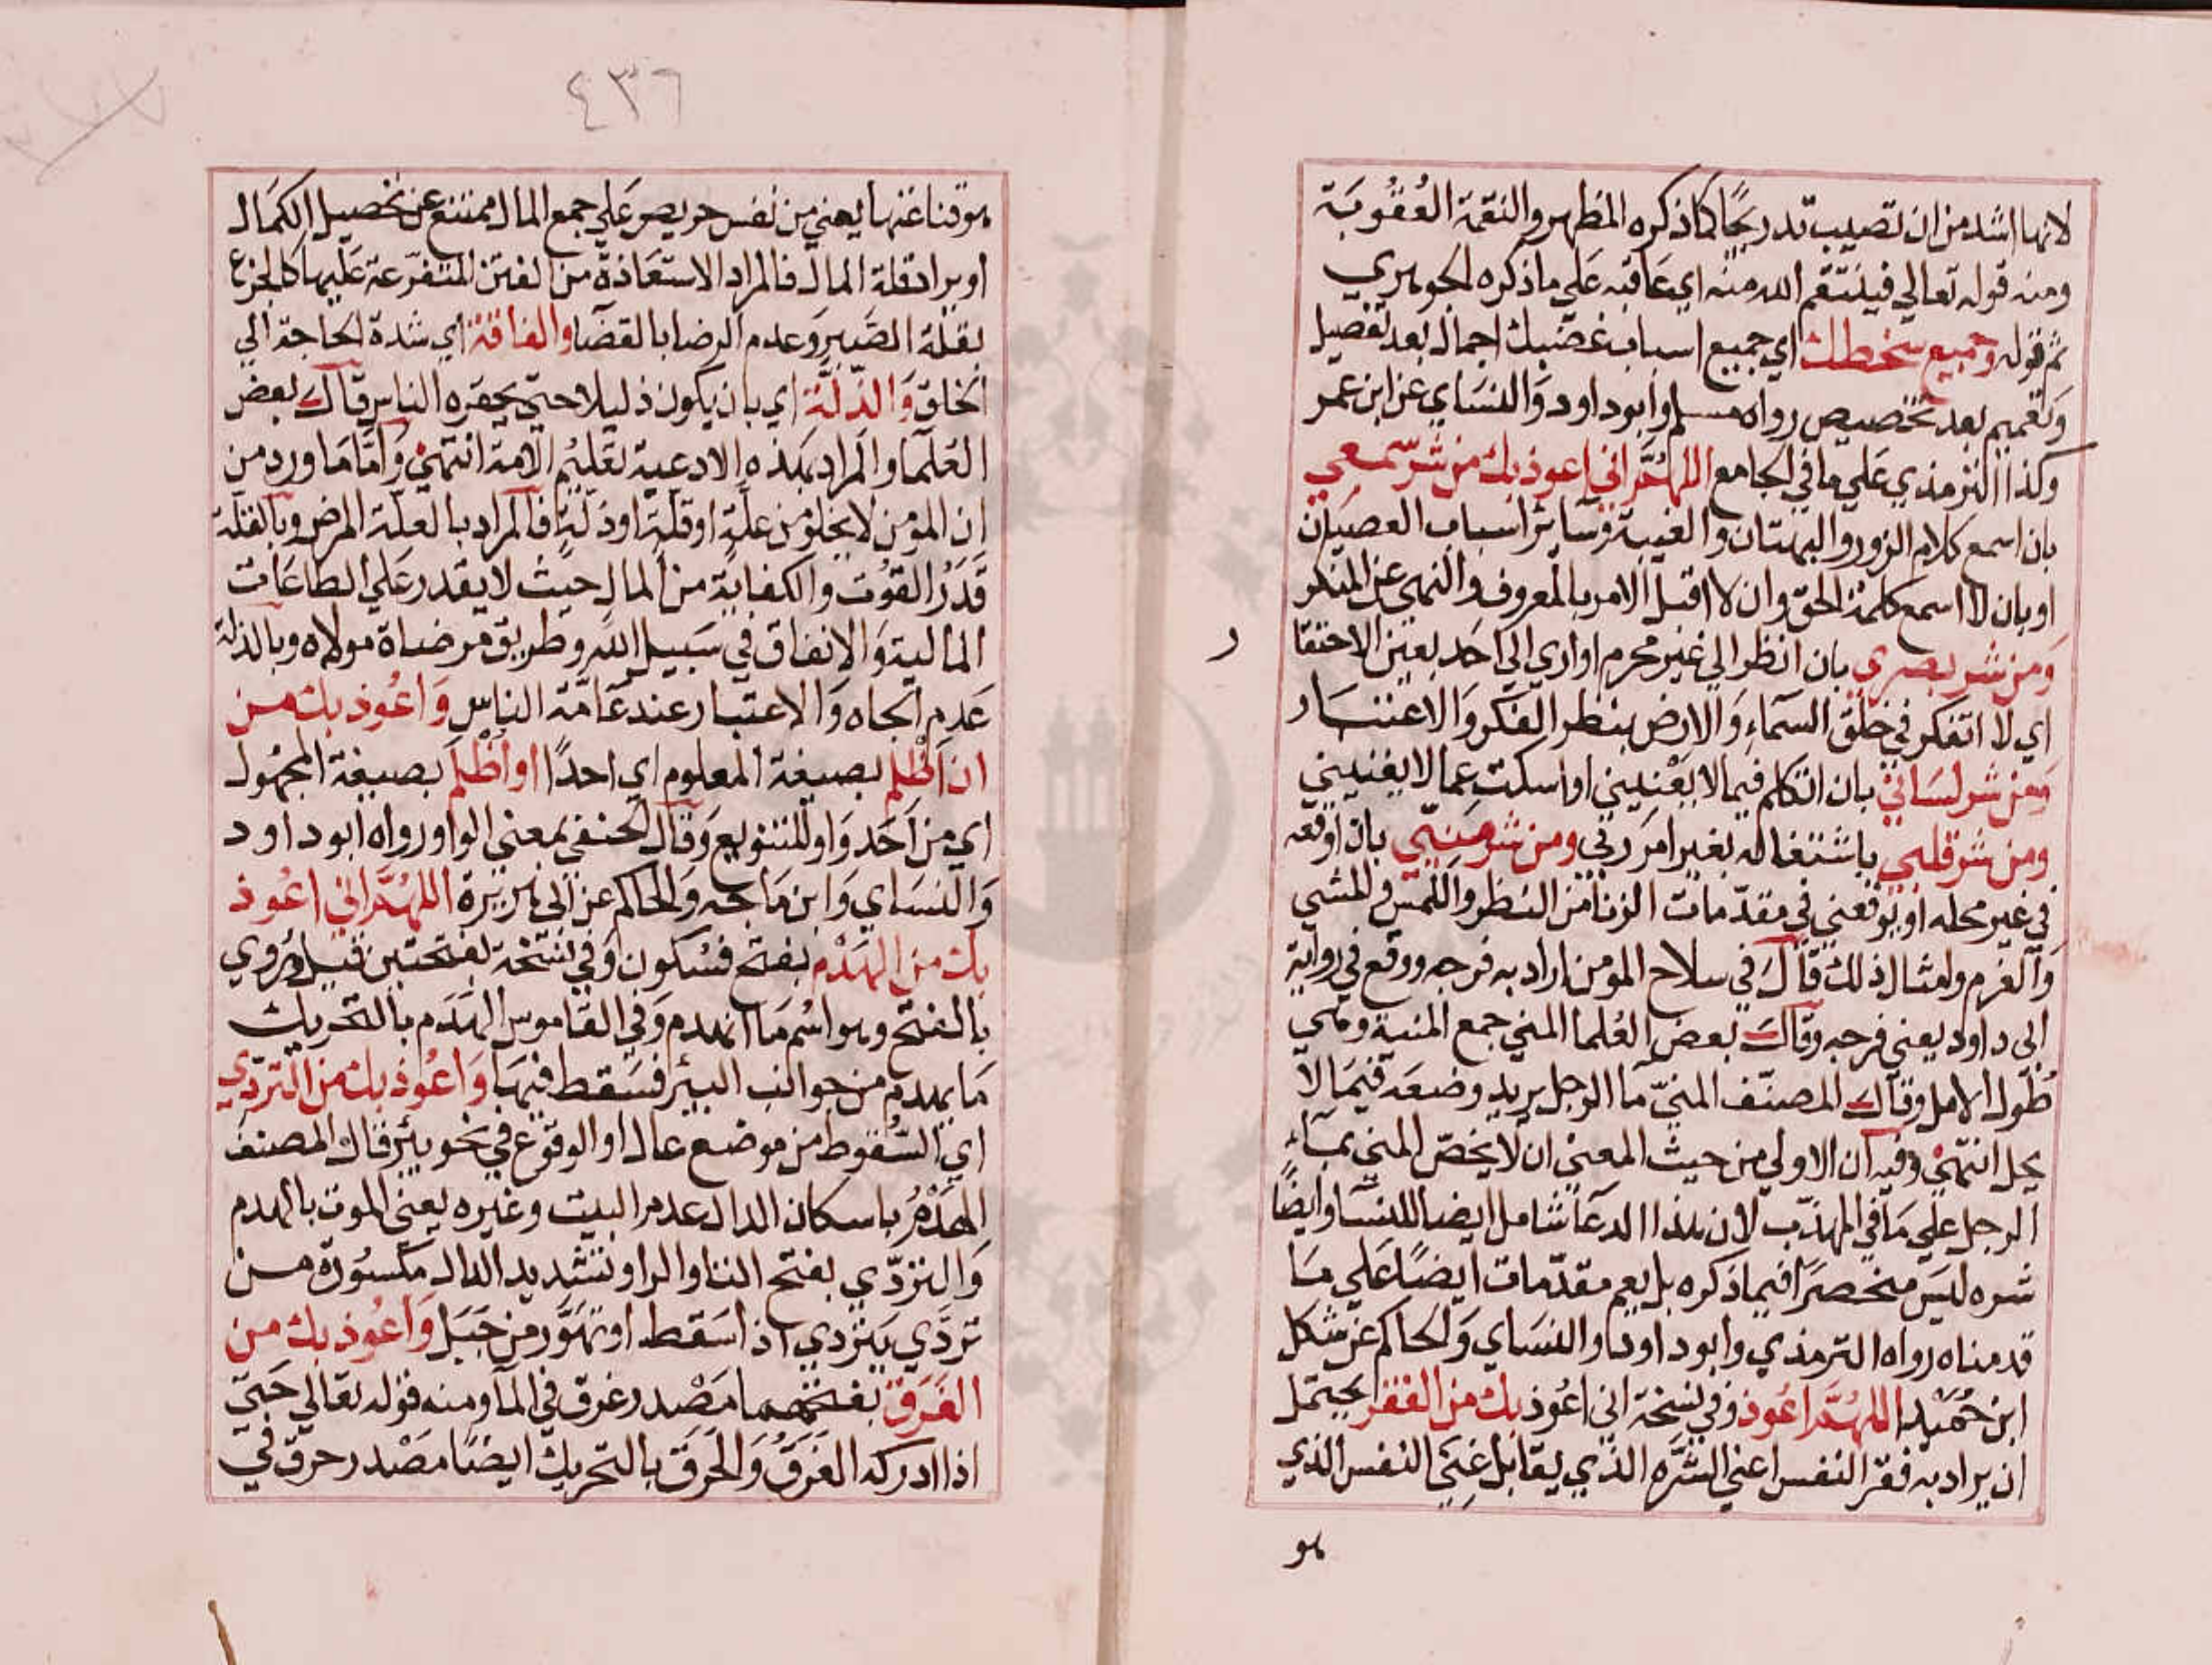 لانها اشد من ان تصيب تدريجًا كما ذكره المظهر والنقمة العُقُوبَة
ومنه قوله تعالي فينتقم الله منه اي عَاقبه عَلي ما ذكره الجوهري
ثم قوله وجميع سخطك اي جميع اسباب غضبك اجمال بعد تفصيل
وتعميم بعد تخصيص رواه مسلم وابو داود وَالنسَاي عن ابن عمر
وكذا الترمذي عَلي ما في الجامع اللهُمَّ اني اعوذ بك من شر سمعي
بان اسمع كلام الزور والبهتان والغيبة وسَاير اسباب العصيان
او بان لا اسمع كلمة الحق وان لا اقبل الامر بالمعروف والنهي عن المنكر
وَمن شر بصري بان انظر الي غير محرم او اري الي احد بعين الاحتقا
ر
اي لا اتفكر في خلق السمَاءِ وَالارض بنظر الفكر وَالاعتبار
وَمن شر لسَاني بان اتكلم فيما لا يَعْنيني او اسكت عما لا يغنيني
ومن شر قلبي باشتغاله بغير امر ربي ومن شر منيّي بان اوقعه
في غير محله او يوقعني في مقدّمات الزنا من النظر واللمس والمشي
وَالغرم وامثال ذلك قَالَ في سلاح المومن اراد به فرجه ووقع في رواية
ابي داود يعني فرجه وقال بعض العُلما المني جمع المنية وهي
طُول الامل وقال المصنّف المنيّ ما الرجل يريد وضعَه فيمَا لا
يحل انتهيْ وفيه ان الاولي من حيث المعنيْ ان لا يخصّ المني بمَاءِ
الرجل علي مَا في المهذّب لان هذا الدعَا شامل ايضا للنسَا وايضًا
شره ليسَ منحصرًا فيما ذكره بل يعم مقدّمات ايضًا عَلي مَا
قدمناه رواه الترمذي وابو داود والنسَاي وَالحاكم عن شكل
ابن حُمَيْد اللهُمَّ اعُوذ وفي نسخة اني اعُوذ بك من الفقر يحتمل
ان يراد به فقر النفس اعني الشَّرَه الذي يقابل غِنيَ النفس الذي
هو
٤٣٦
هو قناعتها يعني من نفس حريص عَلي جمع المال ممتنع عن تحصيل الكمَال
او يراد قلة المال فالمراد الاستعَاذة من الفتن المتفرّعة عَليها كالجزع
بقلة الصَبر وَعدم الرضا بالقضَا والفاقة اي شدة الحاجة الي
الخلق وَالذّلَّة اي بان يكون ذليلا حتي يحقره الناس قال بعض
العُلمَا والمراد بهذه الادعية تعليمُ الامة انتهيْ وَامَّا مَا ورد من
ان المومن لا يخلو من علّة او قلّة او ذلّةٍ فالمراد بالعلّة المرض وبالقلّة
قَدْرُ القوُت والكفاية من المال حيث لا يقدر عَلي الطاعَات
المالية وَالانفاق في سَبيل الله وطريق مرضاة مولاه وبالذلة
عَدم الجاه وَالاعتبار عند عَامّة الناس وَاعُوذ بك من
ان اَظْلم بصيغة المعلوم اي احدًا او اُظْلَم بصيغة المجهُول
اي من اَحَد وَاو للتنويع وَقَال الحنفي بمعني الواو رواه ابو داود
وَالنسَاي وَابن مَاجه وَالحاكم عن ابي هريرة اللهُمَّ اني اعُوذ
بك من الهَدْم بفتح فسُكون وَفي نسخة بفتحتين قيل وَرُوي
بالفتح وهو اسْم مَا انهدم وَفي القاموس الهَدَم بالتحريك
مَا يهدم من جوانب البير فسَقط فيهَا وَاعُوذ بك من التردّي
اي السُّقوط من موضع عال او الوقوع في نحو بئر قال المصنف
الهَدْمُ باسكان الدال عدمر البيت وغيره يعني الموت بالهدم
وَالتردّي بفتح التا والرا وتشديد الدال مكسُورة من
تردَّي يَتردي اذا سَقط او تهَوَّر من جَبَل وَاعُوذ بك من
الغَرَق بفتحهما مَصْدر غرق في الما ومنه قوله تعالي حَتيّ
اذا ادركه الغَرَقُ وَالحَرَق بالتحريك ايضًا مَصْدر حرق في